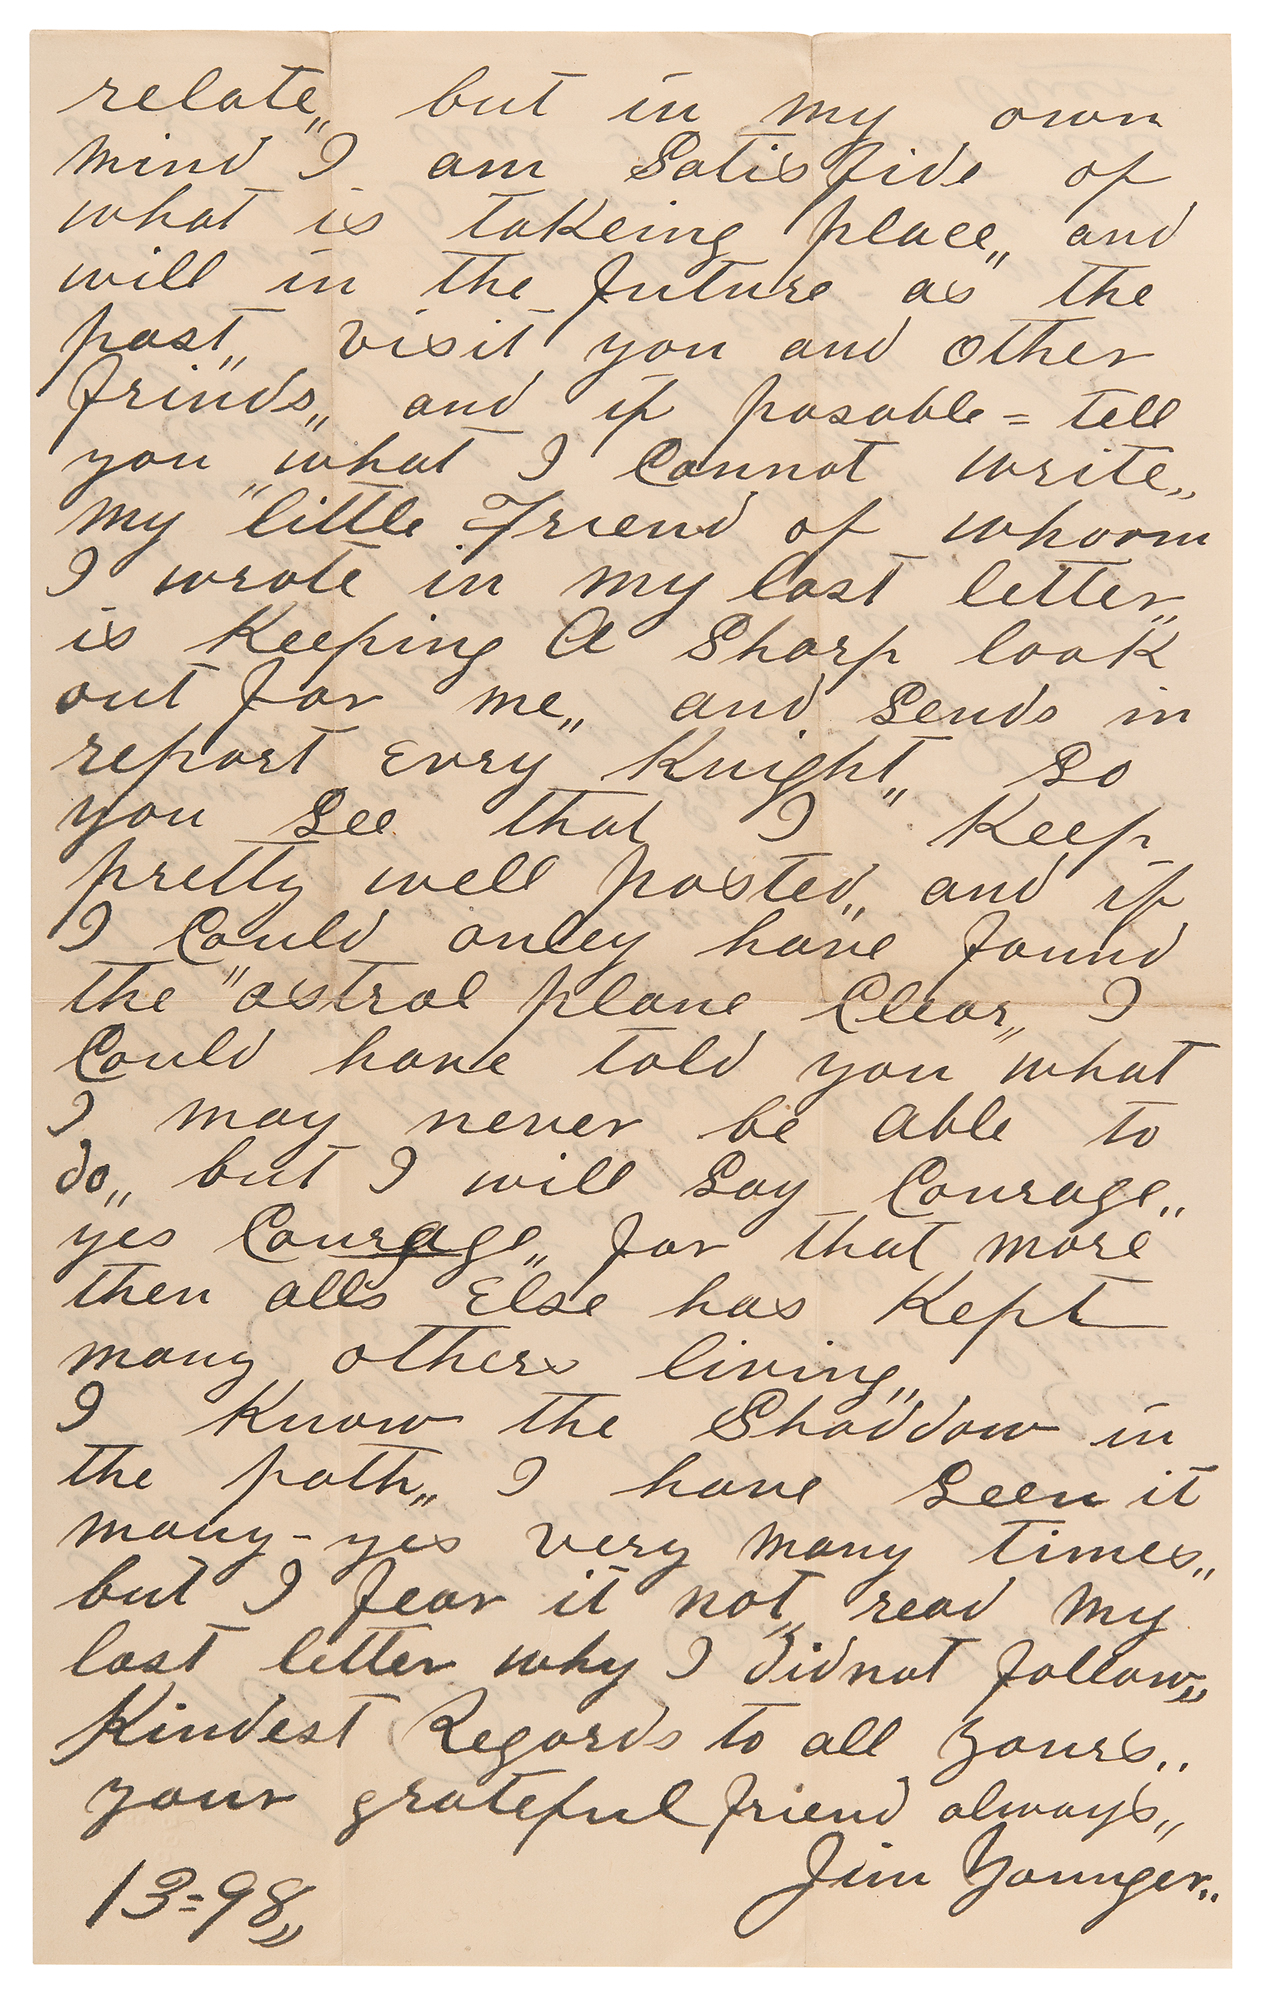 relate„ but in my own
mind I am Satisfide of
what is takeing place„ and
will in the future as the
past„ visit you and other
frinds„ and if posable = tell
you "what I Cannot write„
my "little Friend of whoom
I wrote in my last letter„
is Keeping A Sharp look
out for me„ and Sends in
report Evry Knight„ So
you See that I Keep
pretty well posted„ and if
I Could onley have found
the "astral plane Clear„ I
Could have told you what
I may never be able to
do„ but I will Say Courage„
yes Courage„ for that more
then alls Else has Kept
many others living„
I Know the Shaddow in
the path„ I have Seen it
many - yes very many times„
but I fear it not„ read my
last letter why I didnot follow„
Kindest Regards to all yours„
your grateful friend always„
Jim Younger„
13=98„